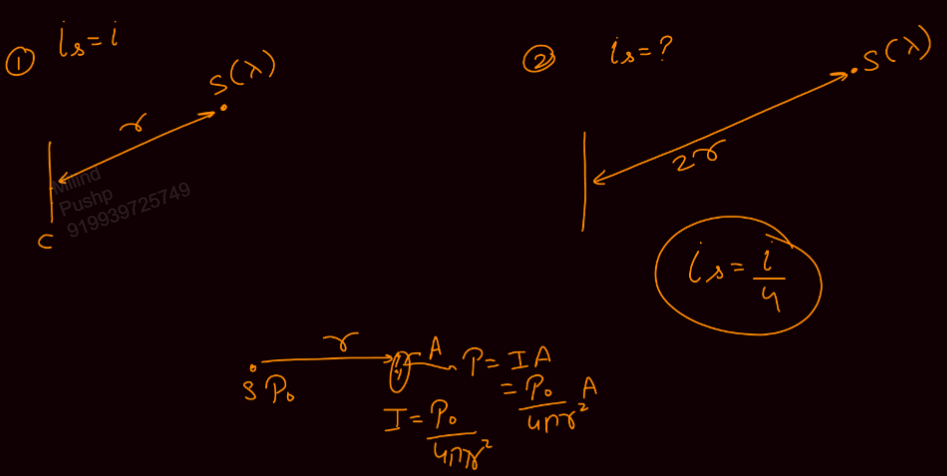 ① i_s = i
S(λ)
r
C
Milind
Pushp
919939725749
② i_s = ?
S(λ)
2r
i_s = i/4
r
S P₀
A
P = IA
= P₀/4πr² A
I = P₀/4πr²